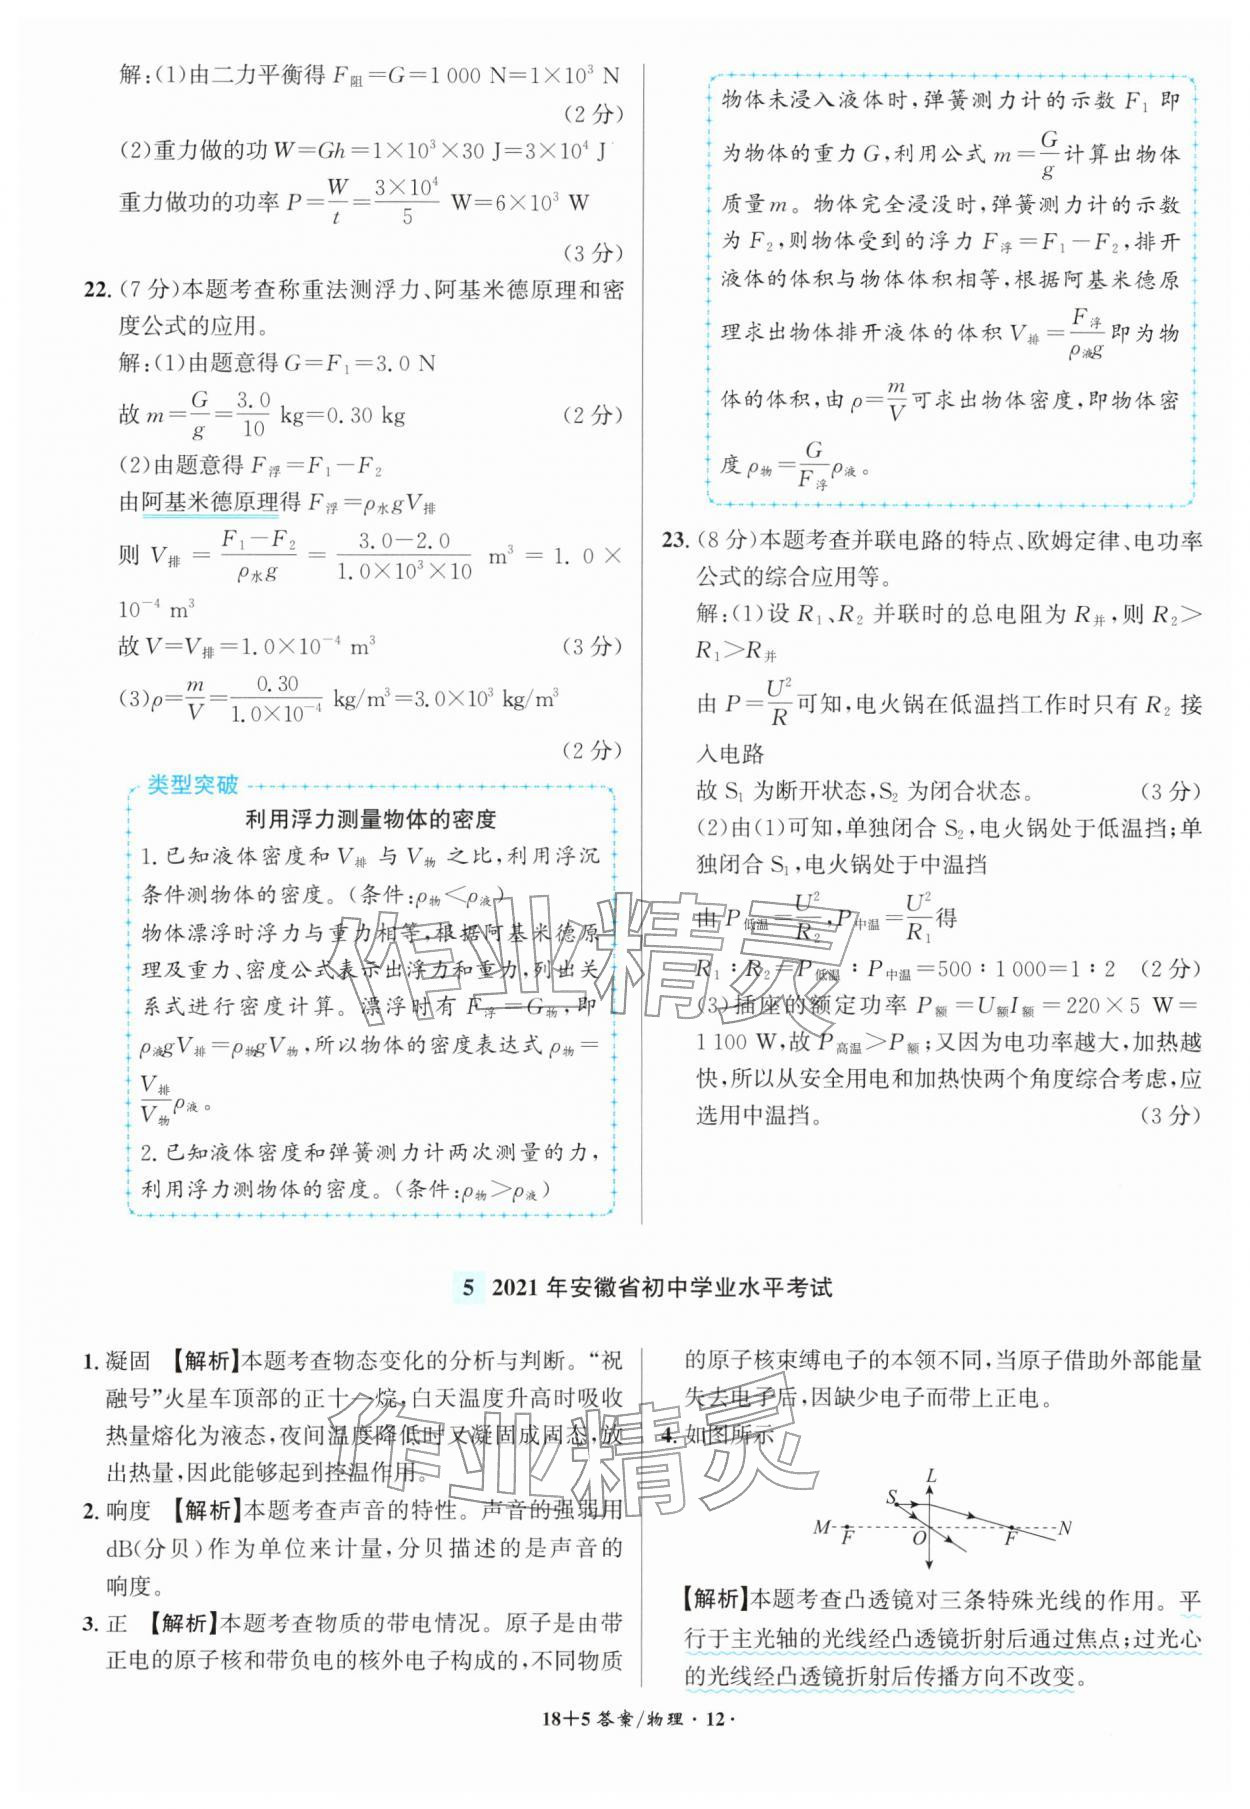 解:(1)由二力平衡得 F阻=G=1 000 N=1×10³ N
(2 分)
(2)重力做的功 W=Gh=1×10³×30 J=3×10⁴ J
重力做功的功率 P=W/t=3×10⁴/5 W=6×10³ W
(3 分)
22. (7 分)本题考查称重法测浮力、阿基米德原理和密
度公式的应用。
解:(1)由题意得 G=F₁=3.0 N
故 m=G/g=3.0/10 kg=0.30 kg (2 分)
(2)由题意得 F浮=F₁-F₂
由阿基米德原理得 F浮=ρ水gV排
则 V排 = (F₁-F₂)/(ρ水g) = (3.0-2.0)/(1.0×10³×10) m³ = 1.0 ×
10⁻⁴ m³
故 V=V排=1.0×10⁻⁴ m³ (3 分)
(3)ρ=m/V=0.30/(1.0×10⁻⁴) kg/m³=3.0×10³ kg/m³
(2 分)
类型突破
利用浮力测量物体的密度
1. 已知液体密度和 V排 与 V物 之比,利用浮沉
条件测物体的密度。(条件:ρ物<ρ液)
物体漂浮时浮力与重力相等,根据阿基米德原
理及重力、密度公式表示出浮力和重力,列出关
系式进行密度计算。漂浮时有 F浮=G物,即
ρ液gV排=ρ物gV物,所以物体的密度表达式 ρ物=
V排/V物 ρ液。
2. 已知液体密度和弹簧测力计两次测量的力,
利用浮力测物体的密度。(条件:ρ物>ρ液)
物体未浸入液体时,弹簧测力计的示数 F₁ 即
为物体的重力 G,利用公式 m=G/g计算出物体
质量m。物体完全浸没时,弹簧测力计的示数
为 F₂,则物体受到的浮力 F浮=F₁-F₂,排开
液体的体积与物体体积相等,根据阿基米德原
理求出物体排开液体的体积 V排=F浮/(ρ液g)即为物
体的体积,由 ρ=m/V可求出物体密度,即物体密
度 ρ物=G/F浮 ρ液。
23. (8 分)本题考查并联电路的特点、欧姆定律、电功率
公式的综合应用等。
解:(1)设 R₁、R₂ 并联时的总电阻为 R并,则 R₂>
R₁>R并
由 P=U²/R可知,电火锅在低温挡工作时只有 R₂ 接
入电路
故 S₁ 为断开状态,S₂ 为闭合状态。 (3 分)
(2)由(1)可知,单独闭合 S₂,电火锅处于低温挡;单
独闭合 S₁,电火锅处于中温挡
由 P低温=U²/R₂,P中温=U²/R₁得
R₁:R₂=P低温:P中温=500:1 000=1:2 (2 分)
(3)插座的额定功率 P额=U额I额=220×5 W=
1 100 W,故 P高温>P额;又因为电功率越大,加热越
快,所以从安全用电和加热快两个角度综合考虑,应
选用中温挡。 (3 分)
5 2021 年安徽省初中学业水平考试
1. 凝固 【解析】本题考查物态变化的分析与判断。“祝
融号”火星车顶部的正十一烷,白天温度升高时吸收
热量熔化为液态,夜间温度降低时又凝固成固态,放
出热量,因此能够起到控温作用。
2. 响度 【解析】本题考查声音的特性。声音的强弱用
dB(分贝)作为单位来计量,分贝描述的是声音的
响度。
3. 正 【解析】本题考查物质的带电情况。原子是由带
正电的原子核和带负电的核外电子构成的,不同物质
的原子核束缚电子的本领不同,当原子借助外部能量
失去电子后,因缺少电子而带上正电。
4. 如图所示
L
S
M F O F N
【解析】本题考查凸透镜对三条特殊光线的作用。平
行于主光轴的光线经凸透镜折射后通过焦点;过光心
的光线经凸透镜折射后传播方向不改变。
作业精灵
作业精灵
18+5 答案/物理·12·